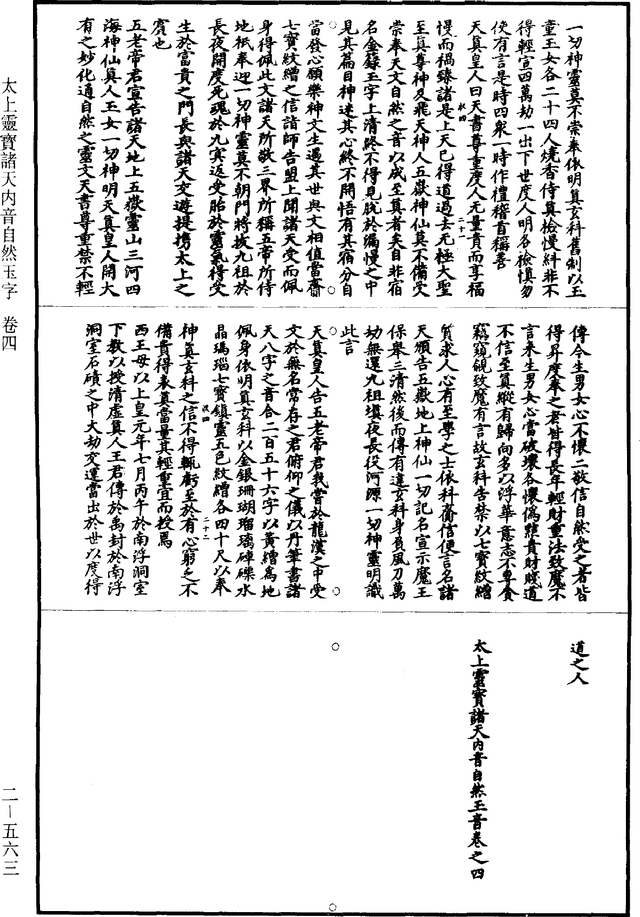 一切神靈莫不崇奉依明真玄科舊制以玉
童玉女各二十四人燒香侍真檢慢糾非不
得輕宣四萬劫一出下世度人明各檢慎勿
使有言是時四衆一時作禮稽首稱善
天真皇人曰天書尊重度人无量貴而享福
慢而禍臻諸是上天已得道過去无極大聖
至真尊神及飛天神人五嶽神仙莫不備受
崇奉天文自然之音以成至真者矣自非宿
名金籙玉字上清終不得見脫於漏慢之中
見其篇目神迷其心終不開悟有其宿分自
當發心願樂神文生遇其世與文相值當齎
七寶紋繒之信詣師告盟上聞諸天受而佩
身得佩此文諸天所敬三界所稱五帝所侍
地祇奉迎一切神靈莫不朝門將拔九祖於
長夜開度死魂於九冥返受胎於靈氣得受
生於富貴之門長與諸天交遊提携太上之
賓也
五老帝君宣告諸天地上五嶽靈山三河四
海神仙真人玉女一切神明天真皇人開大
有之妙化通自然之靈文天書尊重禁不輕
傳今生男女心不懷二敬信自然受之者皆
得昇度奉之者皆得長年輕財重法致魔不
言來生男女心當破壞各懷僞雜貴財賤道
不信至真縱有歸向多以浮華意志不專貪
竊窺覦致魔有言故玄科告禁以七寶紋繒
質求人心有至學之士依科齎信便言名諸
天須告五嶽地上神仙一切記名宣示魔王
保舉三清然後而傳有違玄科身負風刀萬
劫無還九祖塡夜長役河源一切神靈明識
此言
天真皇人告五老帝君我嘗於龍漢之中受
文於無名常存之君俯仰之儀以丹筆書諸
天八字之音合二百五十六字以黃繒爲地
佩身依明真玄科以金銀珊瑚瑠璃硨磲水
晶瑪瑙七寶鎮靈五色紋繒各四十尺以奉
神真玄科之信不得輒虧至於有心窮乏不
備貴得表真當量其輕重宜而授焉
西王母以上皇元年七月丙午於南浮洞室
下教以授清虛真人王君傳於禹封於南浮
洞室石磧之中大劫交運當出於世以度得
道之人
太上靈寶諸天內音自然玉音卷之四
太上靈寶諸天內音自然玉字 卷四
二—五六三